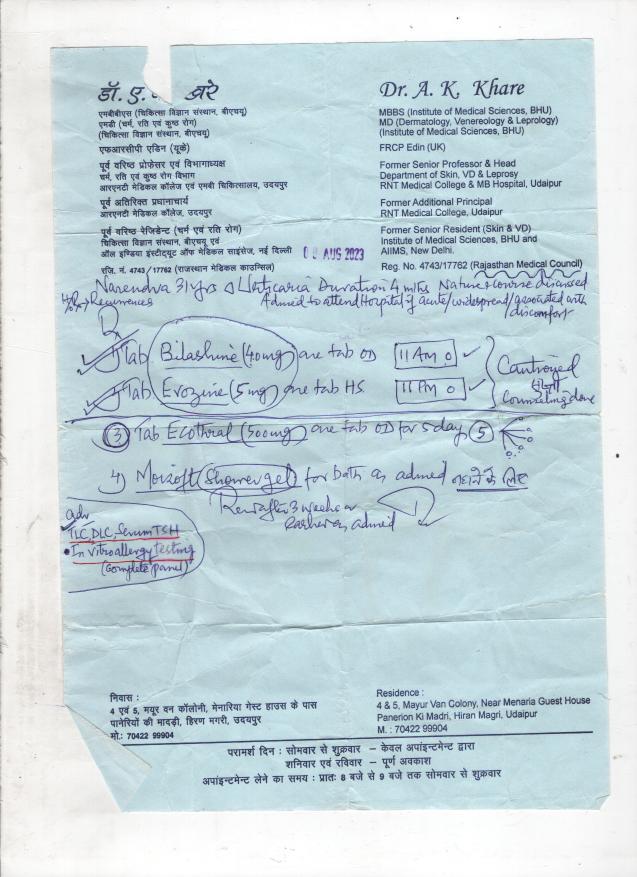 डॉ. ए. खरे
Dr. A. K. Khare
एमबीबीएस (चिकित्सा विज्ञान संस्थान, बीएचयू)
एमडी (चर्म, रति एवं कुष्ठ रोग)
(चिकित्सा विज्ञान संस्थान, बीएचयू)
एफआरसीपी एडिन (यूके)
पूर्व वरिष्ठ प्रोफेसर एवं विभागाध्यक्ष
चर्म, रति एवं कुष्ठ रोग विभाग
आरएनटी मेडिकल कॉलेज एवं एमबी चिकित्सालय, उदयपुर
पूर्व अतिरिक्त प्रधानाचार्य
आरएनटी मेडिकल कॉलेज, उदयपुर
पूर्व वरिष्ठ रेजिडेन्ट (चर्म एवं रति रोग)
चिकित्सा विज्ञान संस्थान, बीएचयू एवं
ऑल इण्डिया इंस्टीट्यूट ऑफ मेडिकल साइंसेज, नई दिल्ली
रजि. नं. 4743/17762 (राजस्थान मेडिकल काउन्सिल)
MBBS (Institute of Medical Sciences, BHU)
MD (Dermatology, Venereology & Leprology)
(Institute of Medical Sciences, BHU)
FRCP Edin (UK)
Former Senior Professor & Head
Department of Skin, VD & Leprosy
RNT Medical College & MB Hospital, Udaipur
Former Additional Principal
RNT Medical College, Udaipur
Former Senior Resident (Skin & VD)
Institute of Medical Sciences, BHU and
AIIMS, New Delhi.
Reg. No. 4743/17762 (Rajasthan Medical Council)
AUG 2023
Narendra 31yrs Δ Urticaria Duration 4 mths Nature & course discussed
Recurrences Admed to attend Hospital if acute/widespread/associated with
discomfort
Rx
1) Tab Bilashine (40mg) one tab OD 11 AM
2) Tab Evozine (5mg) one tab HS. 11 PM
Cautioned
Counseling done
(3) Tab Ecothral (500mg) one tab OD for 5 day (5)
4) Moisoft (Shower gel) for bath as admed नहाने के लिए
Rev after 3 weeks or
earlier as admed
adv
TLC, DLC, Serum TSH
• In vitro allergy testing
(Complete panel)
निवास :
4 एवं 5, मयूर वन कॉलोनी, मेनारिया गेस्ट हाउस के पास
पानेरियों की मादड़ी, हिरण मगरी, उदयपुर
मो.: 70422 99904
Residence :
4 & 5, Mayur Van Colony, Near Menaria Guest House
Panerion Ki Madri, Hiran Magri, Udaipur
M. : 70422 99904
परामर्श दिन : सोमवार से शुक्रवार – केवल अपांइन्टमेन्ट द्वारा
शनिवार एवं रविवार – पूर्ण अवकाश
अपांइन्टमेन्ट लेने का समय : प्रातः 8 बजे से 9 बजे तक सोमवार से शुक्रवार